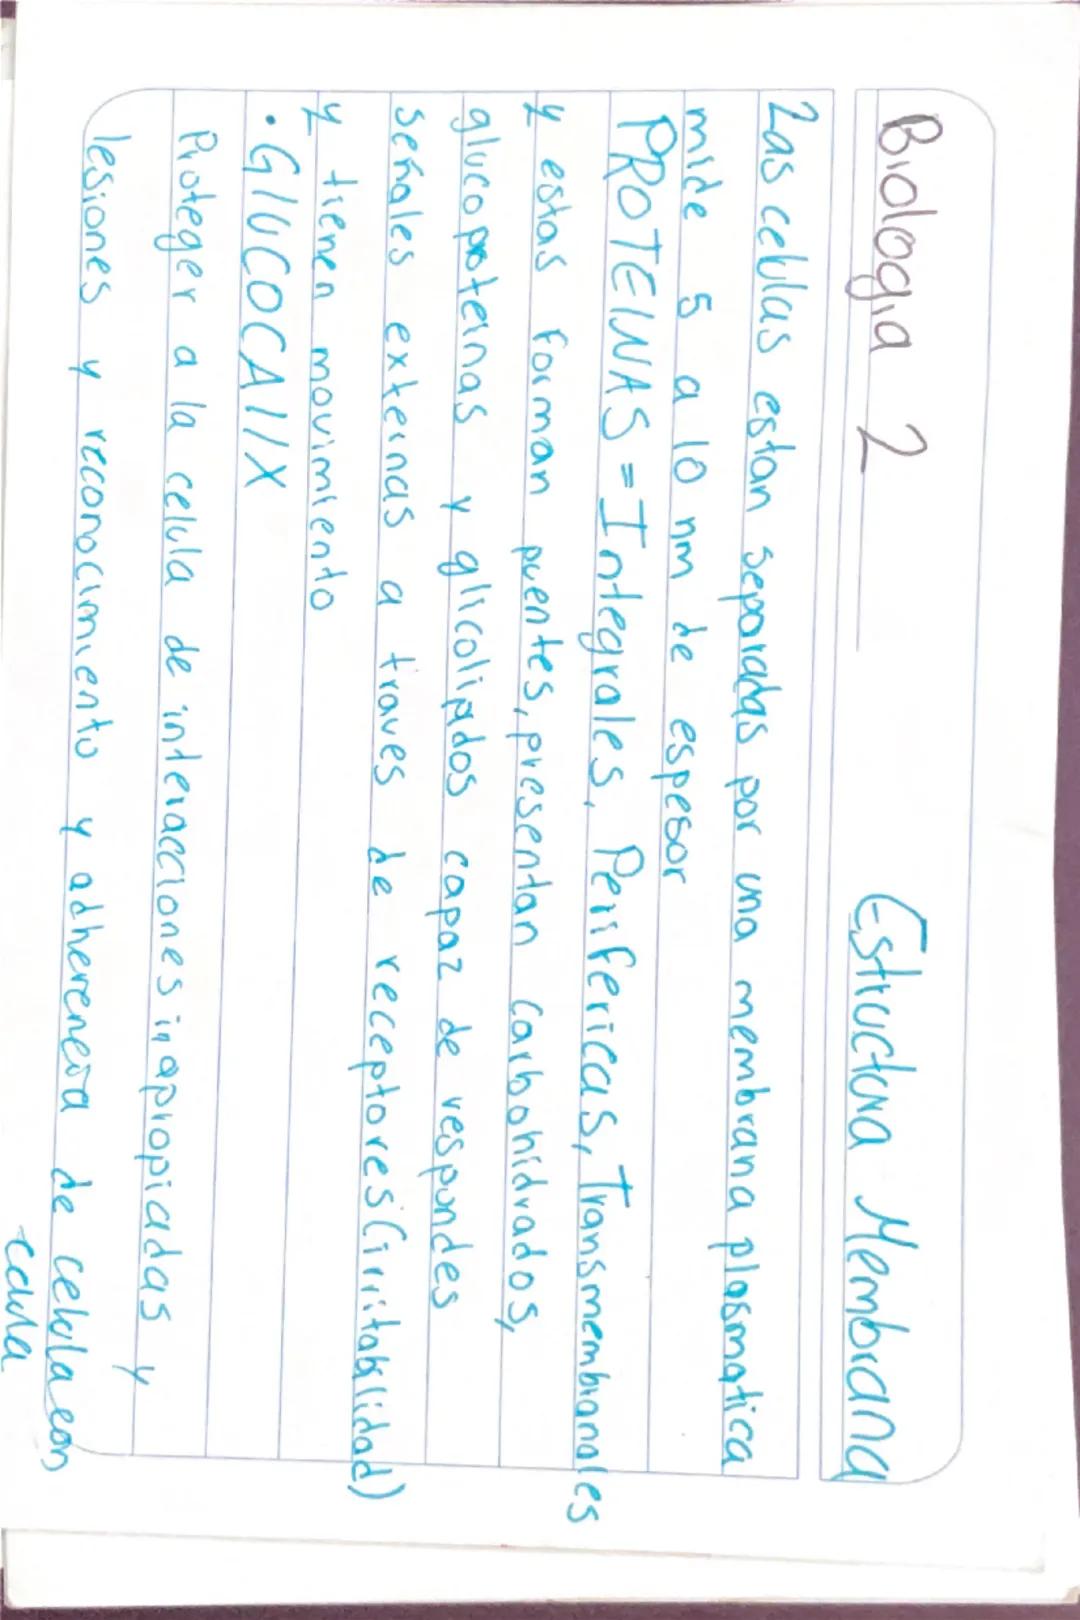 Biologia 2 Estructura Membrana
Las celulas estan separadas por una membrana plasmatica
mide 5 a 10 nm de espesor
PROTEINAS = Integrales, Perifericas, Transmembranales
y estas forman puentes, presentan carbohidrados,
glucoproteinas y glicolipidos capaz de respondes
señales externas a traves de receptores (irritabilidad)
y tienen movimiento
• GlUCOCAllX
Proteger a la celula de interacciones inapropiadas y
lesiones y reconocimiento y adherencia de celula con
-celula